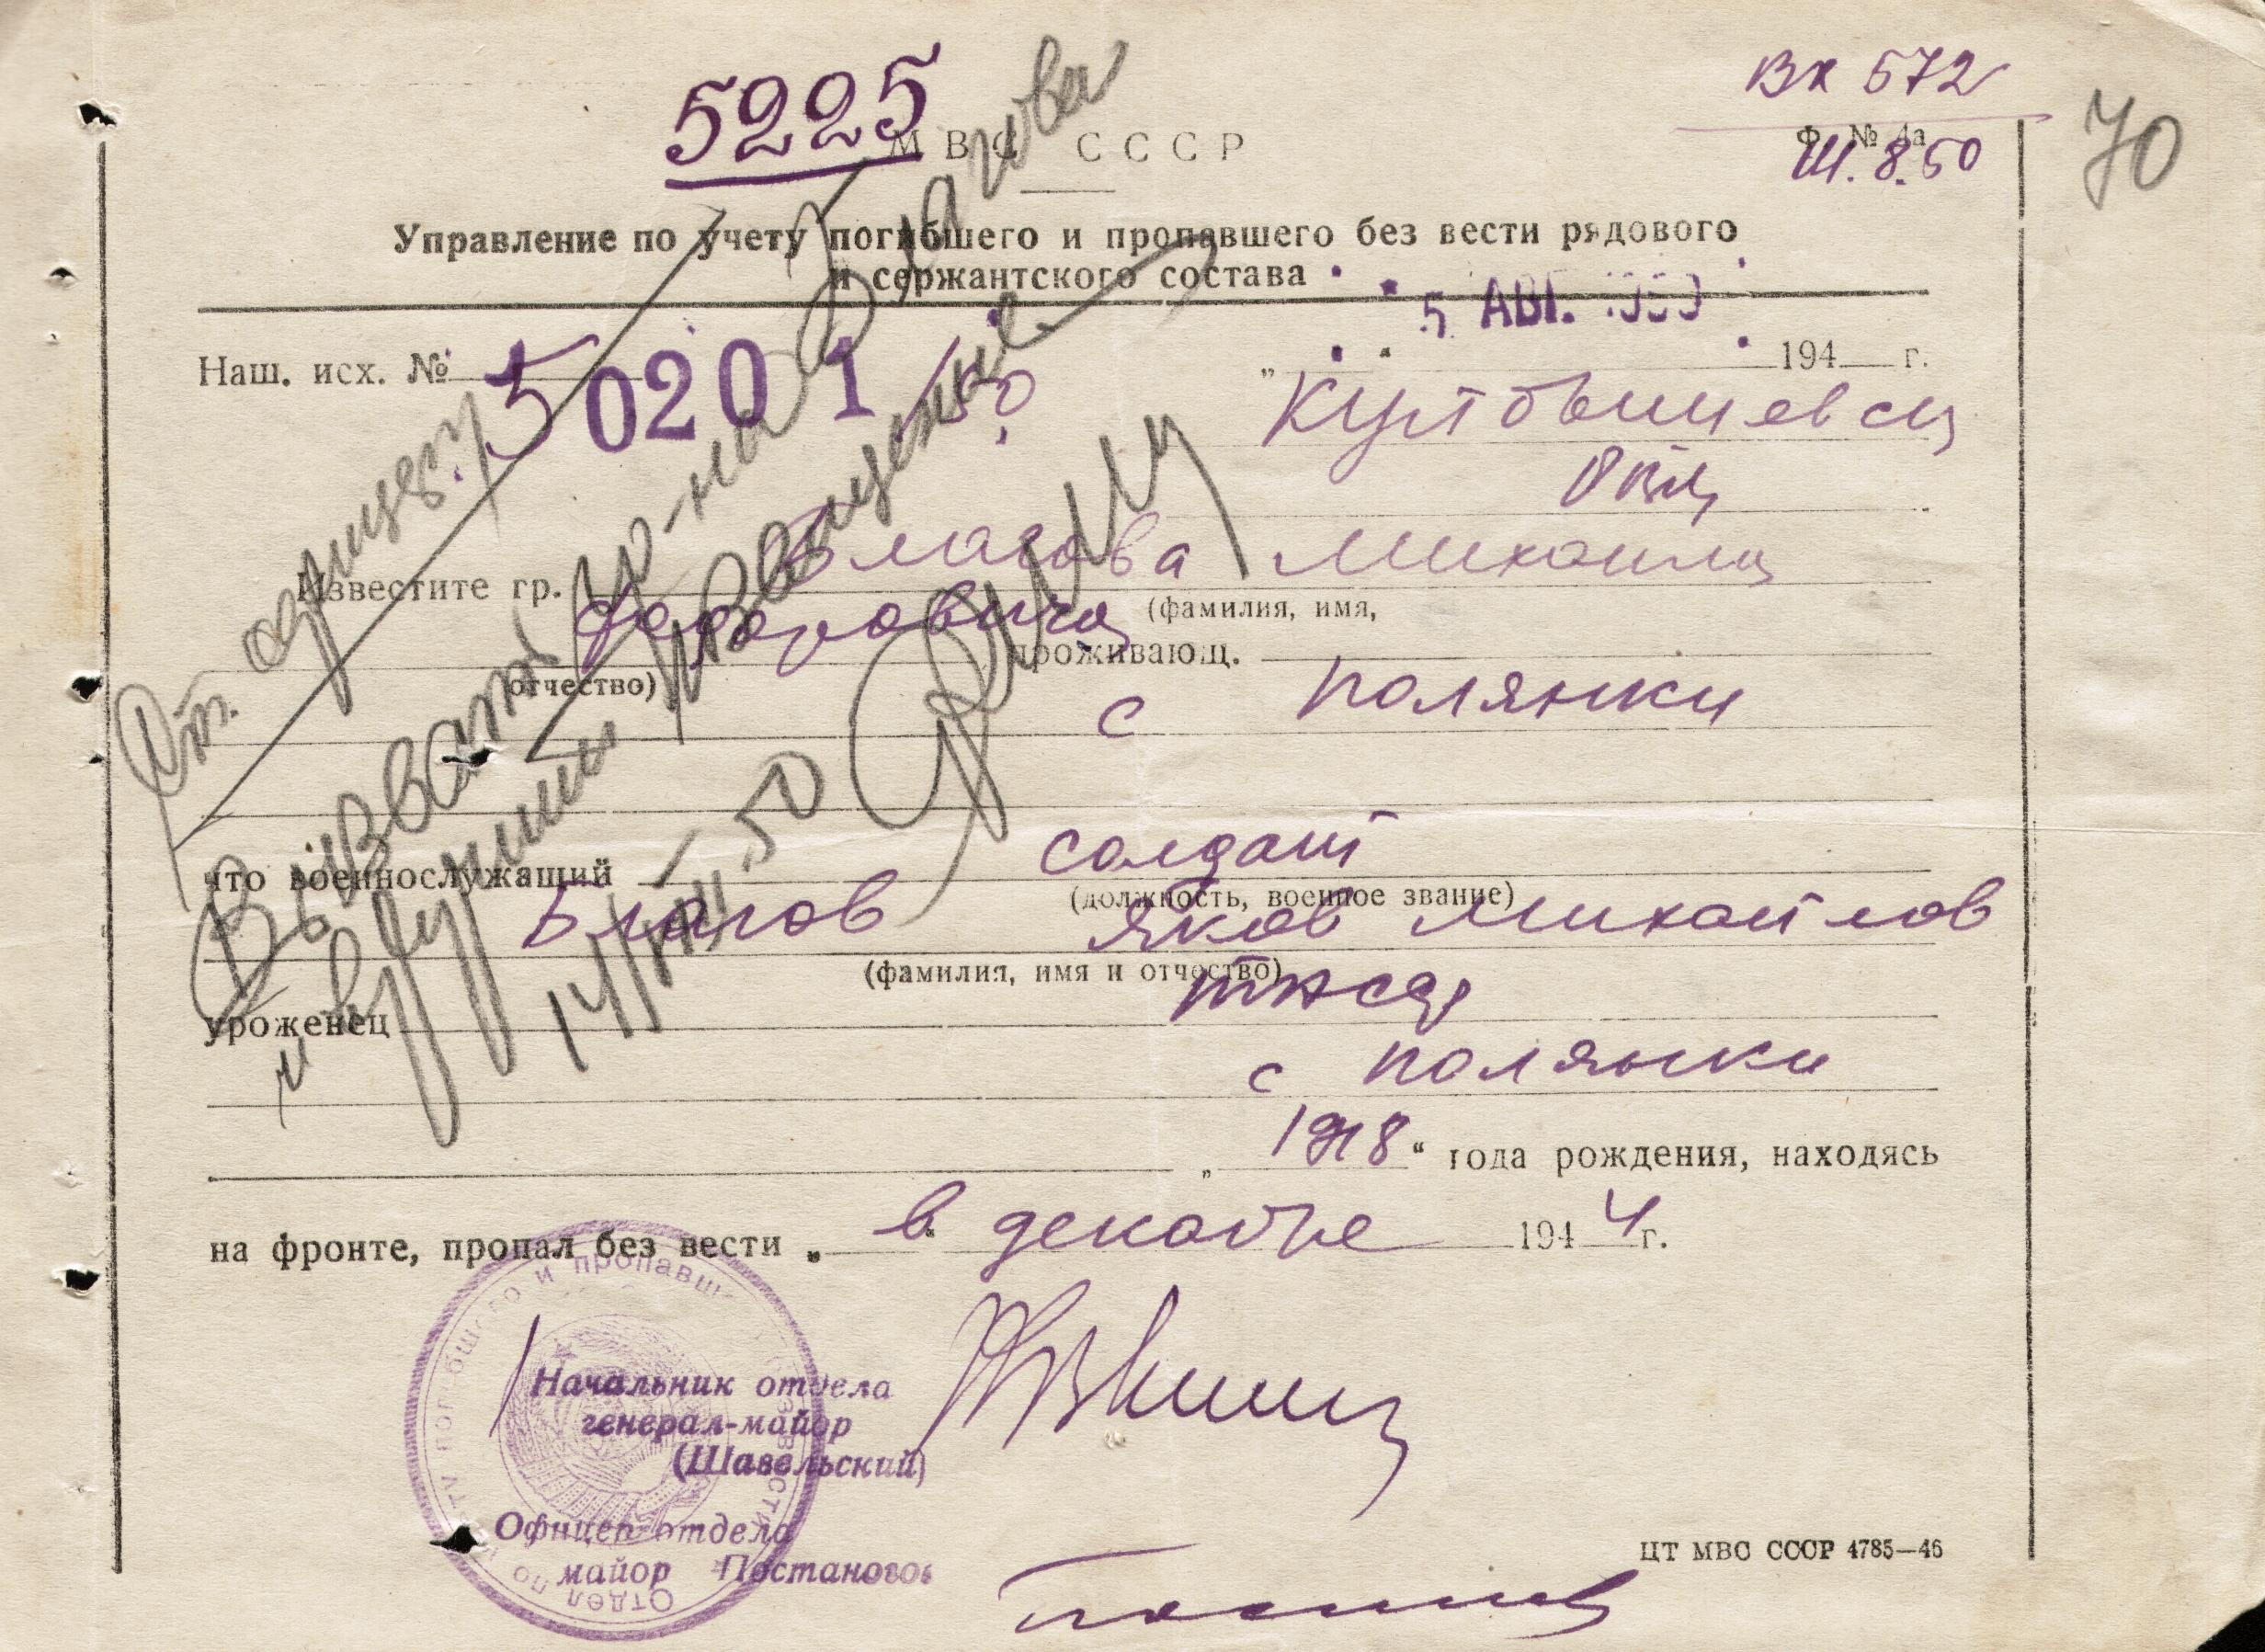 5225
Вх 572
М В С СССР
Ф. № 4а
70
Ш. 8. 50
Управление по учету погибшего и пропавшего без вести рядового
и сержантского состава
5 АВГ.
Наш. исх. № 50201/50
„ 194 г.
Известите гр. Благова Михаила
(фамилия, имя,
Федоровича проживающ.
отчество)
с Полянки
что военнослужащий солдат
(должность, военное звание)
Благов Яков Михайлов
(фамилия, имя и отчество)
уроженец
с Полянки
„ 1918 “ года рождения, находясь
на фронте, пропал без вести „ в “ декабре 1944 г.
Вызвать гр-на Благова
и вручить извещение
14/VIII.50
Начальник отдела
генерал-майор
(Шавельский)
Офицер отдела
майор Постаногов
Отдел по учету погибшего и пропавшего без вести
ЦТ МВС СССР 4785—46